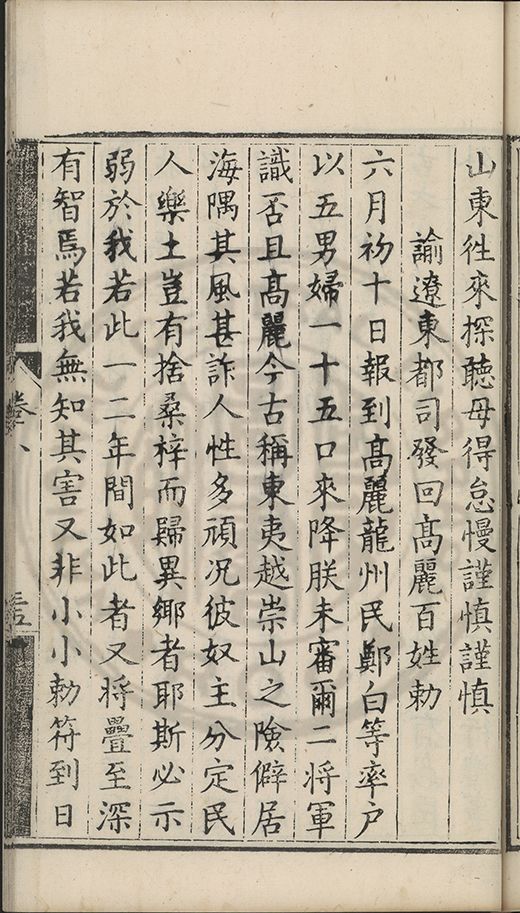 山東徃來探聽毋得怠慢謹慎謹慎
諭遼東都司發回髙麗百姓勑
六月初十日報到髙麗龍州民鄭白等率戸
以五男婦一十五口來降朕未審爾二將軍
識否且髙麗今古稱東夷越崇山之險僻居
海隅其風甚詐人性多頑况彼奴主分定民
人樂土豈有捨桑梓而歸異鄉者耶斯必示
弱於我若此一二年間如此者又將疊至深
有智焉若我無知其害又非小小勑符到日
卷八